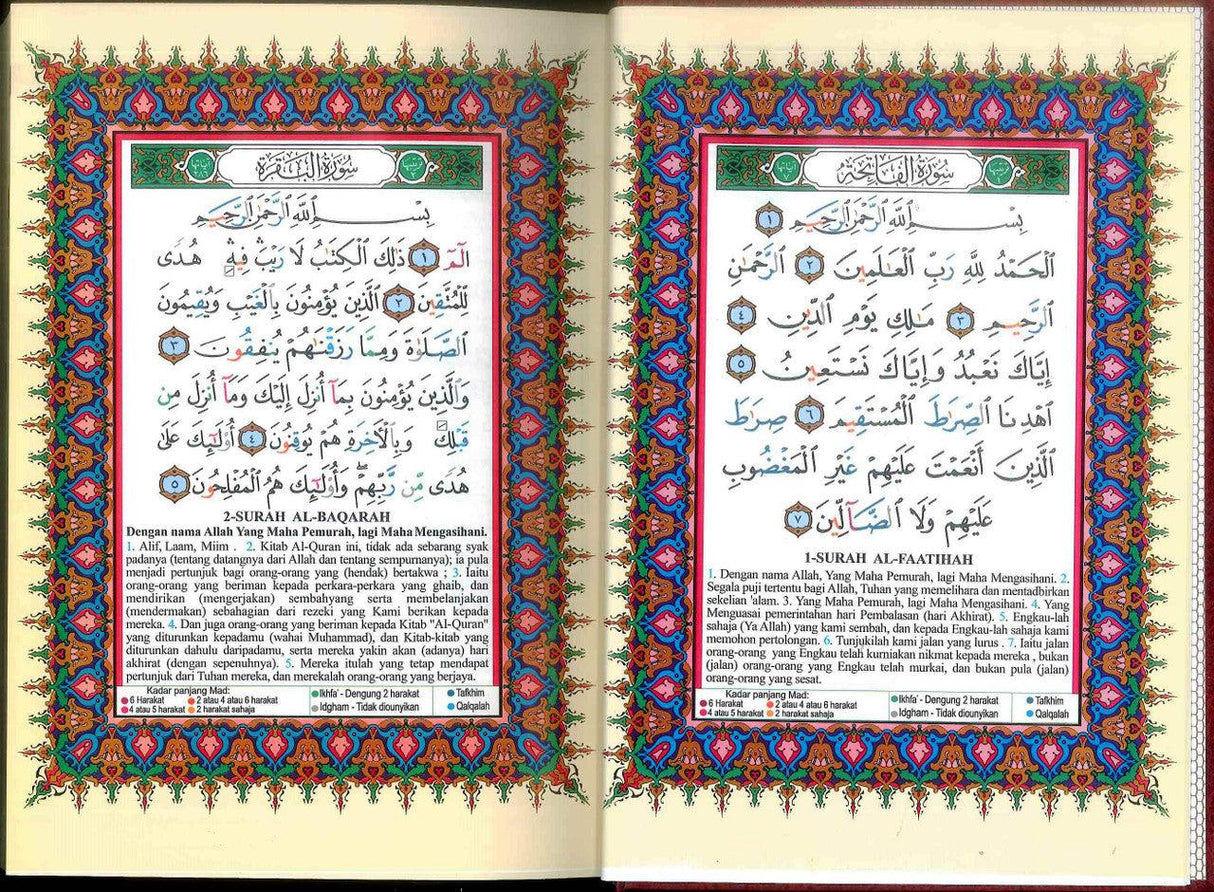 سورة الفاتحة
بِسْمِ ٱللَّهِ ٱلرَّحْمَٰنِ ٱلرَّحِيمِ ١
ٱلْحَمْدُ لِلَّهِ رَبِّ ٱلْعَٰلَمِينَ ٢ ٱلرَّحْمَٰنِ
ٱلرَّحِيمِ ٣ مَٰلِكِ يَوْمِ ٱلدِّينِ ٤
إِيَّاكَ نَعْبُدُ وَإِيَّاكَ نَسْتَعِينُ ٥
ٱهْدِنَا ٱلصِّرَٰطَ ٱلْمُسْتَقِيمَ ٦ صِرَٰطَ
ٱلَّذِينَ أَنْعَمْتَ عَلَيْهِمْ غَيْرِ ٱلْمَغْضُوبِ
عَلَيْهِمْ وَلَا ٱلضَّآلِّينَ ٧
1-SURAH AL-FAATIHAH
1. Dengan nama Allah, Yang Maha Pemurah, lagi Maha Mengasihani. 2.
Segala puji tertentu bagi Allah, Tuhan yang memelihara dan mentadbirkan
sekelian 'alam. 3. Yang Maha Pemurah, lagi Maha Mengasihani. 4. Yang
Menguasai pemerintahan hari Pembalasan (hari Akhirat). 5. Engkau-lah
sahaja (Ya Allah) yang kami sembah, dan kepada Engkau-lah sahaja kami
memohon pertolongan. 6. Tunjukilah kami jalan yang lurus . 7. Iaitu jalan
orang-orang yang Engkau telah kurniakan nikmat kepada mereka , bukan
(jalan) orang-orang yang Engkau telah murkai, dan bukan pula (jalan)
orang-orang yang sesat.
Kadar panjang Mad:
6 Harakat 2 atau 4 atau 6 harakat
4 atau 5 harakat 2 harakat sahaja
Ikhfa' - Dengung 2 harakat
Idgham - Tidak diounyikan
Tafkhim
Qalqalah
سورة البقرة
بِسْمِ ٱللَّهِ ٱلرَّحْمَٰنِ ٱلرَّحِيمِ
الٓمٓ ١ ذَٰلِكَ ٱلْكِتَٰبُ لَا رَيْبَۛ فِيهِۛ هُدًى
لِّلْمُتَّقِينَ ٢ ٱلَّذِينَ يُؤْمِنُونَ بِٱلْغَيْبِ وَيُقِيمُونَ
ٱلصَّلَوٰةَ وَمِمَّا رَزَقْنَٰهُمْ يُنفِقُونَ ٣
وَٱلَّذِينَ يُؤْمِنُونَ بِمَآ أُنزِلَ إِلَيْكَ وَمَآ أُنزِلَ مِن
قَبْلِكَ وَبِٱلْأَخِرَةِ هُمْ يُوقِنُونَ ٤ أُو۟لَٰٓئِكَ عَلَىٰ
هُدًى مِّن رَّبِّهِمْ ۖ وَأُو۟لَٰٓئِكَ هُمُ ٱلْمُفْلِحُونَ ٥
2-SURAH AL-BAQARAH
Dengan nama Allah Yang Maha Pemurah, lagi Maha Mengasihani.
1. Alif, Laam, Miim . 2. Kitab Al-Quran ini, tidak ada sebarang syak
padanya (tentang datangnya dari Allah dan tentang sempurnanya); ia pula
menjadi pertunjuk bagi orang-orang yang (hendak) bertakwa ; 3. Iaitu
orang-orang yang beriman kepada perkara-perkara yang ghaib, dan
mendirikan (mengerjakan) sembahyang serta membelanjakan
(mendermakan) sebahagian dari rezeki yang Kami berikan kepada
mereka. 4. Dan juga orang-orang yang beriman kepada Kitab "Al-Quran"
yang diturunkan kepadamu (wahai Muhammad), dan Kitab-kitab yang
diturunkan dahulu daripadamu, serta mereka yakin akan (adanya) hari
akhirat (dengan sepenuhnya). 5. Mereka itulah yang tetap mendapat
pertunjuk dari Tuhan mereka, dan merekalah orang-orang yang berjaya.
Kadar panjang Mad:
6 Harakat 2 atau 4 atau 6 harakat
4 atau 5 harakat 2 harakat sahaja
Ikhfa' - Dengung 2 harakat
Idgham - Tidak diounyikan
Tafkhim
Qalqalah